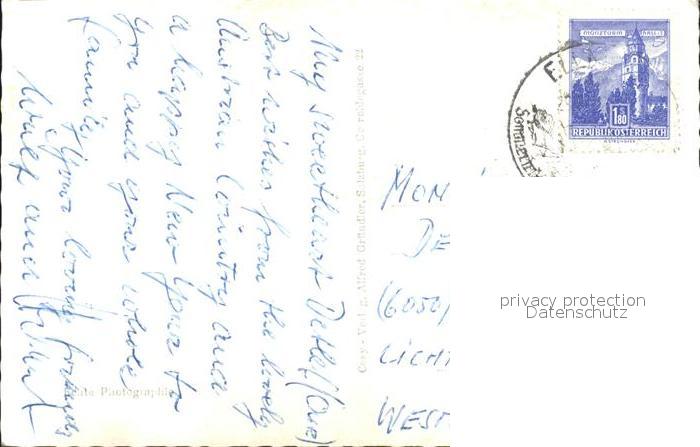 My sweetheart Detlef (One)
Best wishes from the lovely
Austrian Country and
a happy New Year to
you and your whole
family
Your loving friends
Wulf and
Echte Photographie
Copy - Verl. g. Alfred Gründler, Salzburg, 22
MÜNZTURM HALL I. T.
1.80
REPUBLIK ÖSTERREICH
MON
DE
(6050)
LICHT
WEST
privacy protection
Datenschutz